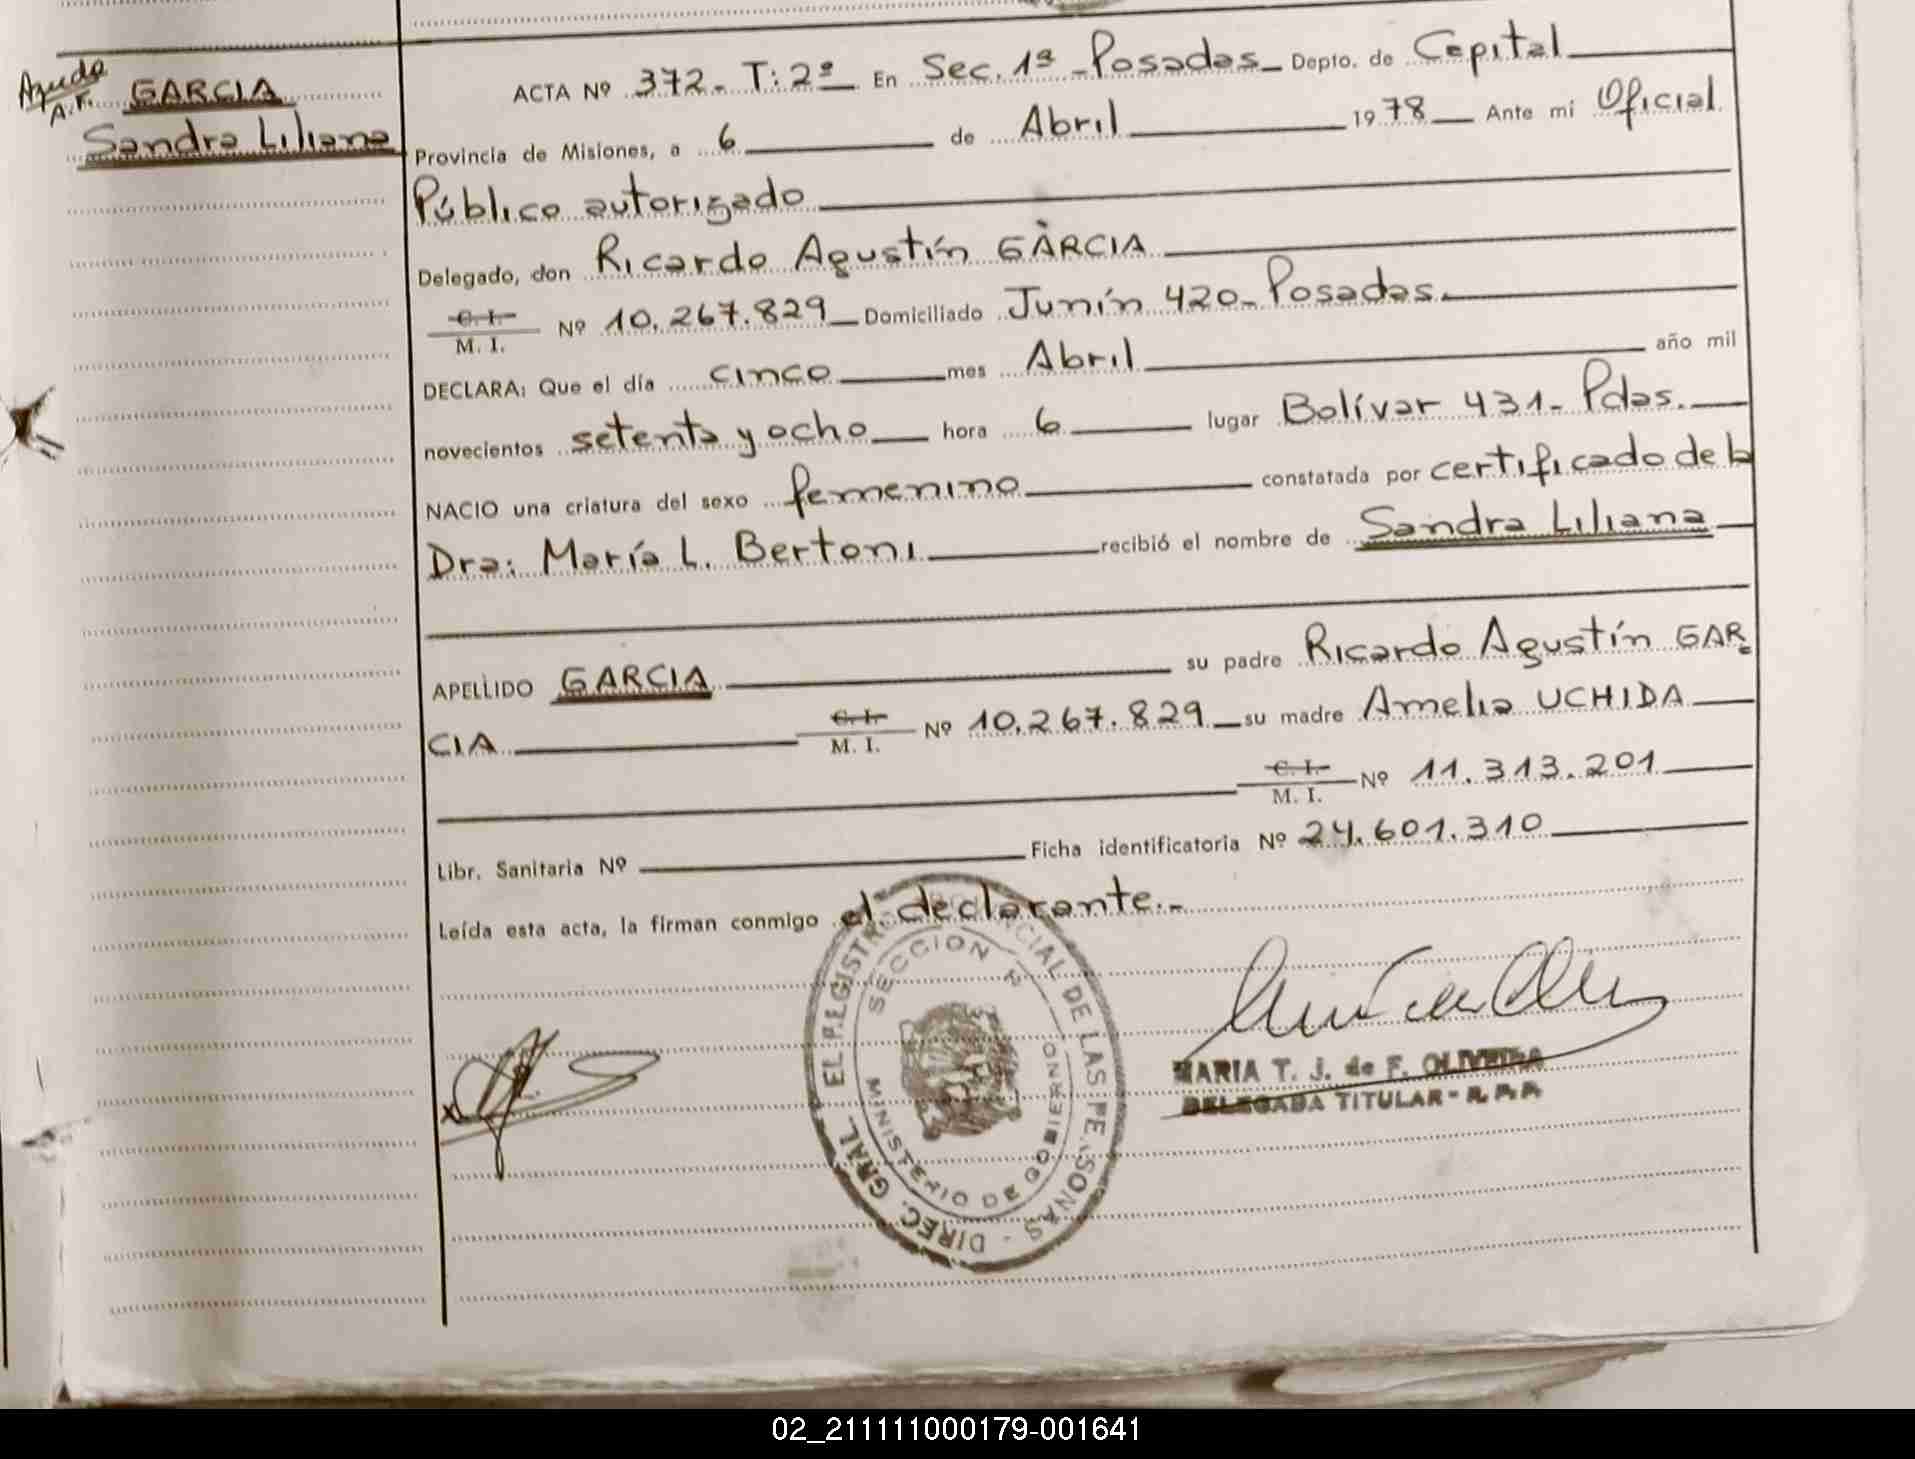 Ayuda
A.F.
GARCIA
Sandra Liliana
ACTA Nº 372- T: 2º En Sec. 1ª - Posadas - Depto. de Capital
Provincia de Misiones, a 6 de Abril 1978 Ante mi Oficial
Público autorizado
Delegado, don Ricardo Agustín GARCIA
C. I.
M. I. Nº 10.267.829 Domiciliado Junín 420- Posadas.
DECLARA: Que el día cinco mes Abril año mil
novecientos setenta y ocho hora 6 lugar Bolívar 431- Pdas.
NACIO una criatura del sexo femenino constatada por certificado de la
Dra: María L. Bertoni recibió el nombre de Sandra Liliana
APELLIDO GARCIA su padre Ricardo Agustín GAR
CIA C. I. M. I. Nº 10.267.829 su madre Amelia UCHIDA
C. I.
M. I. Nº 11.313.201
Libr. Sanitaria Nº Ficha identificatoria Nº 24.601.310
Leída esta acta, la firman conmigo el declarante.-
SECCION
MINISTERIO DE GOBIERNO
DIREC. GRAL. DE LAS PERSONAS
MARIA T. J. de F. OLIVEIRA
DELEGADA TITULAR - R. P. P.
02_211111000179-001641